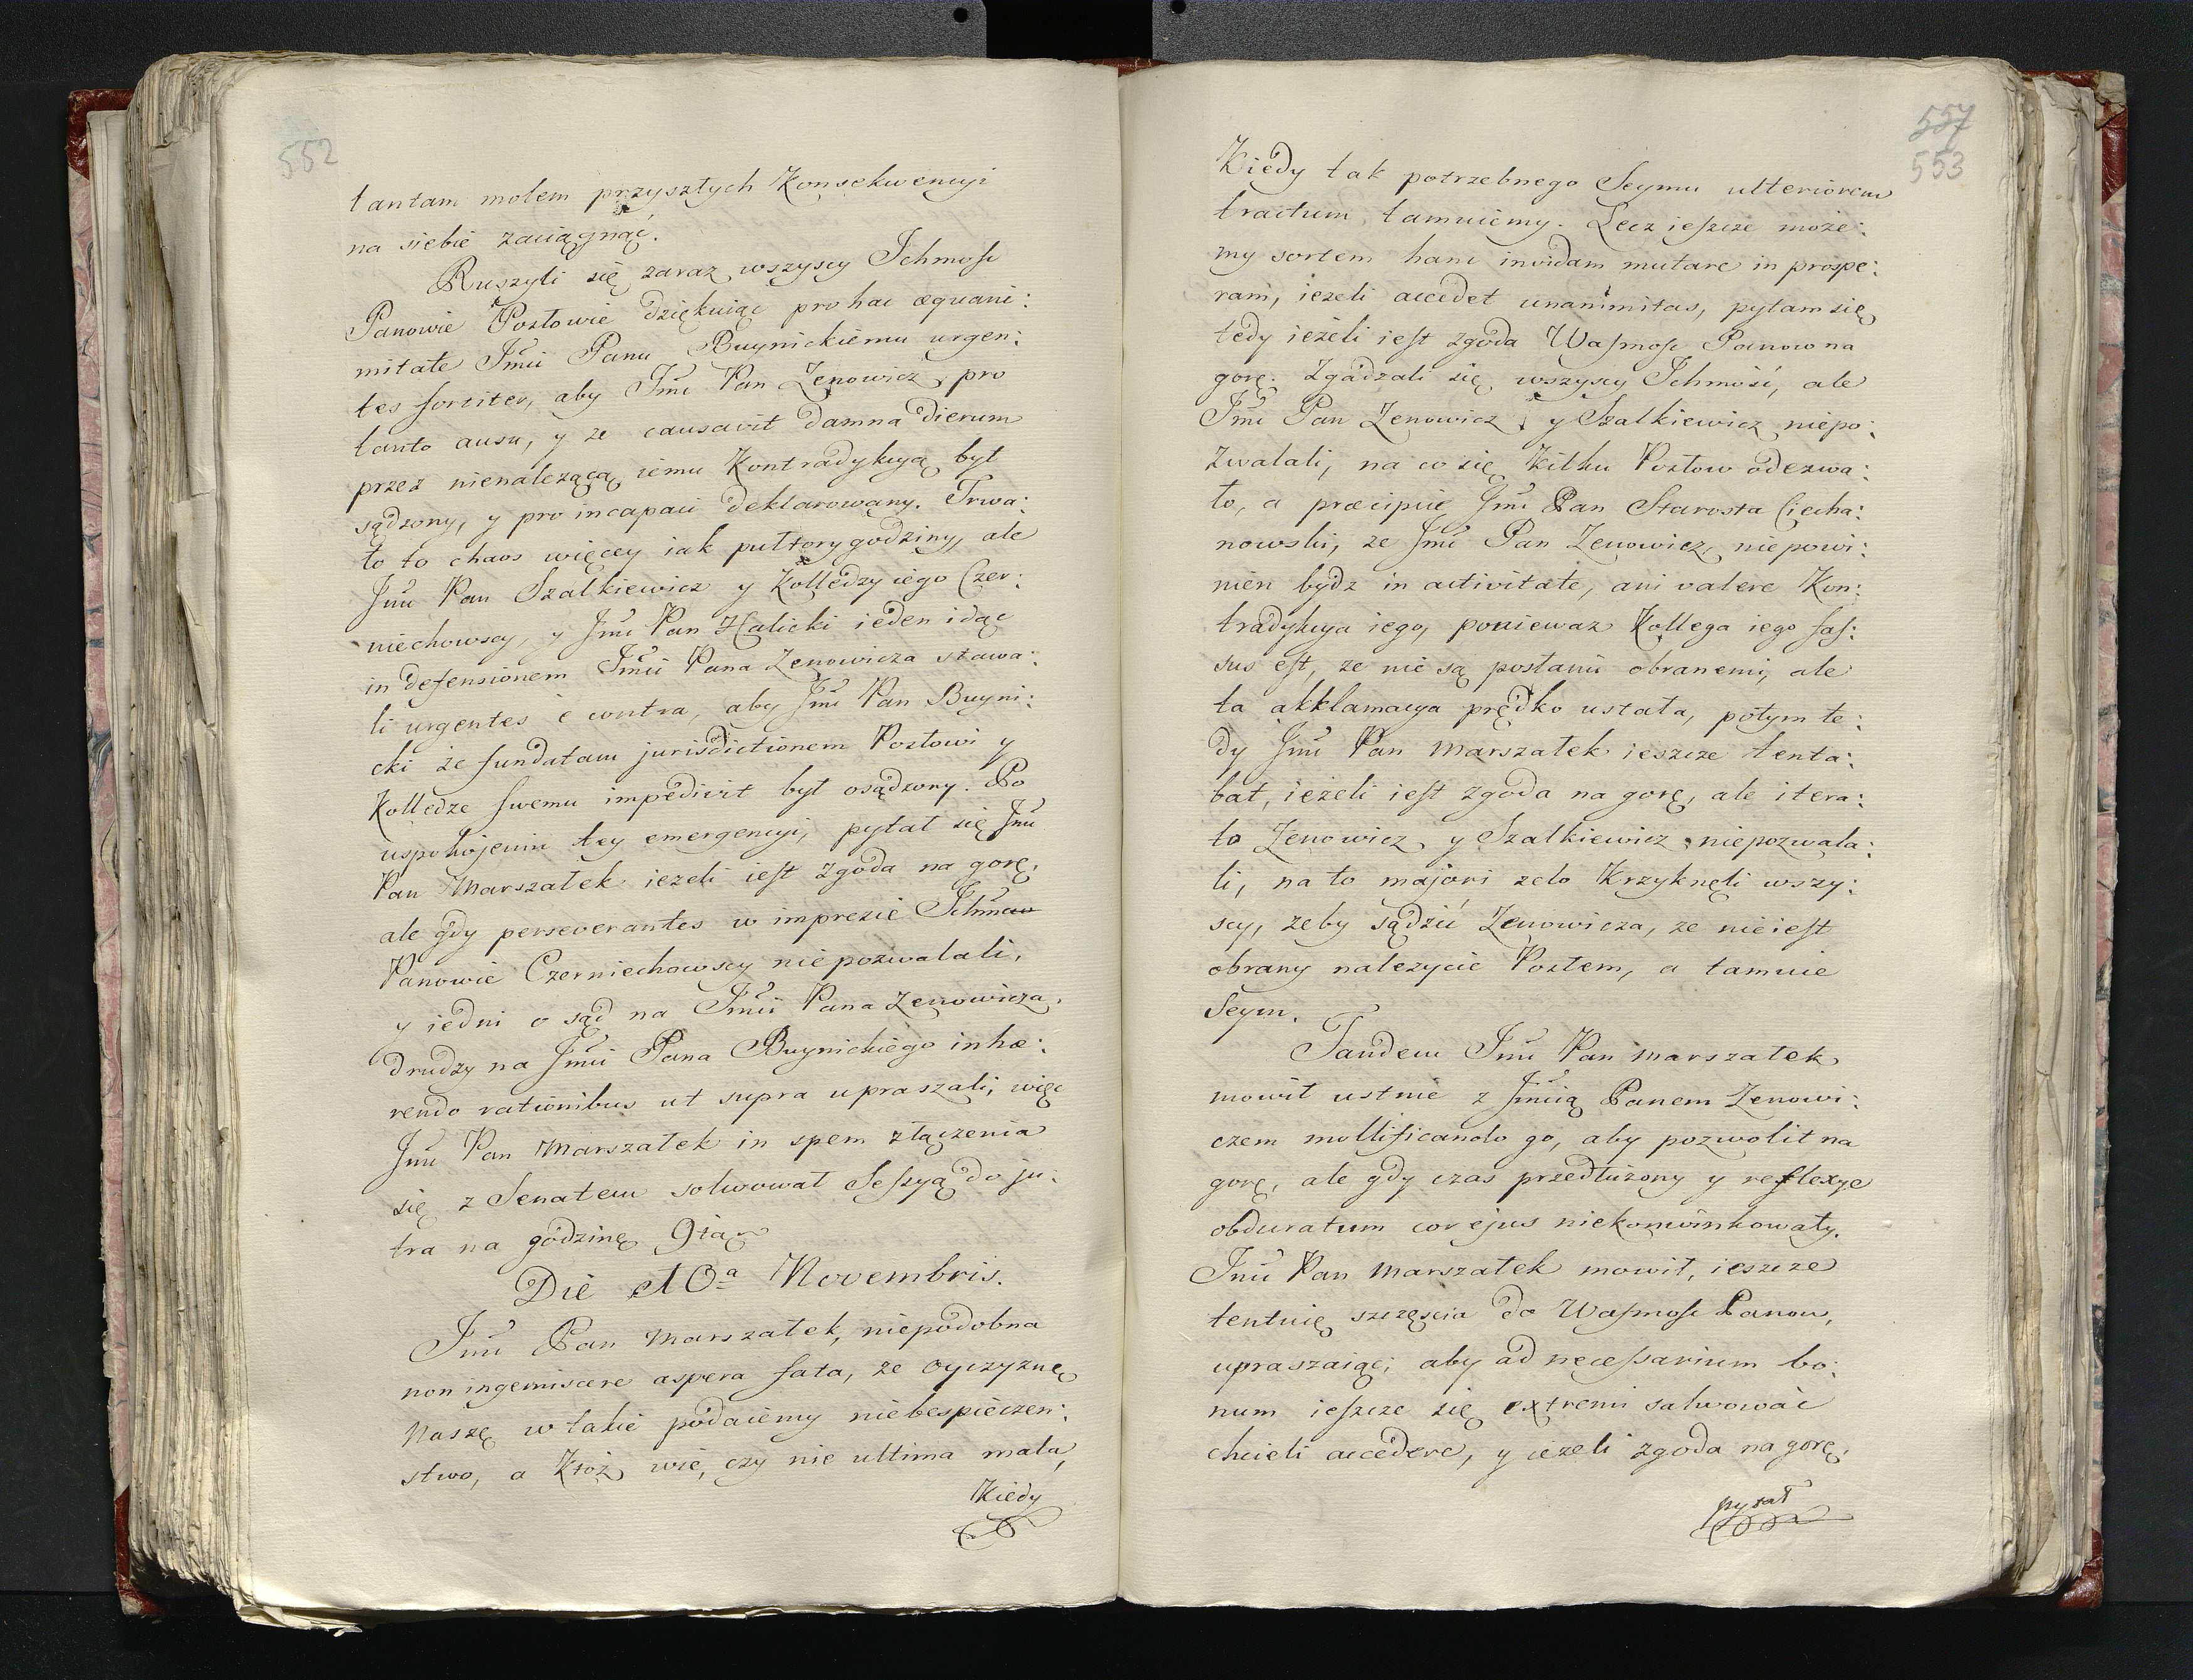 552
tantam molem przyszłych Konsekwencyi
na siebie zaciągnąć.
Ruszyli się zaraz wszyscy Ichmość
Panowie Posłowie dziękuiąc pro hac æquani:
mitate Jmci Panu Buynickiemu urgen:
tes fortiter, aby Jmć Pan Zenowicz, pro
tanto ausu, y że causavit damna dierum
przez nienależącą iemu Kontradykcyą był
sądzony, y pro incapaci deklarowany. Trwa:
ło to chaos więcey iak pułtory godziny, ale
Jmć Pan Szalkiewicz y Kolledzy iego Czer:
niechowscy, y Jmć Pan Halicki ieden idąc
in defensionem Jmci Pana Zenowicza stawa:
li urgentes è contra, aby Jmć Pan Buyni:
cki że fundatam jurisdictionem Posłowi y
Kolledze swemu impedivit był osądzony. Po
uspokojeniu tey emergencyi, pytał się Jmć
Pan Marszałek ieżeli iest zgoda na gorę,
ale gdy perseverantes w imprezie Ichmć
Panowie Czerniechowscy niepozwalali,
y iedni o sąd na Jmci Pana Zenowicza,
drudzy na Jmci Pana Buynickiego inhæ:
rendo rationibus ut supra upraszali, więc
Jmć Pan Marszałek in spem złączenia
się z Senatem solwował Sessyą do ju:
tra na godzinę 9tą
Die 10ª Novembris.
Jmć Pan Marszałek, niepodobna
non ingemiscere aspera fata, że Oyczyznę
Naszę w takie podaiemy niebespieczen:
stwo, a Ktoż wie, czy nie ultima mala,
Kiedy
557
553
Kiedy tak potrzebnego Seymu ulteriorem
tractum tamuiemy. Lecz ieszcze może:
my sortem hanc invidam mutare in prospe:
ram, ieżeli accedet unanimitas, pytam się
tedy ieżeli iest zgoda Wasmość Panow na
gorę. Zgadzali się wszyscy Ichmość, ale
Jmć Pan Zenowicz y Szalkiewicz niepo:
zwalali, na co się kilku Posłow odezwa:
ło, a præcipuè Jmć Pan Starosta Ciecha:
nowski, że Jmć Pan Zenowicz, niepowi:
nien bydz in activitate, ani valere Kon:
tradykcya iego, ponieważ Kollega iego fas:
sus est, że nie są posłami obranemi, ale
ta akklamacya prędko ustała, potym te:
dy Jmć Pan Marszałek ieszcze tenta:
bat, ieżeli iest zgoda na gorę, ale itera:
to Zenowicz y Szalkiewicz niepozwala:
li, na to majori zelo Krzyknęli wszy:
scy, żeby sądzić Zenowicza, że nieiest
obrany należycie Posłem, a tamuie
Seym.
Tandem Jmć Pan Marszałek
mowił ustnie z Jmcią Panem Zenowi:
czem mollificando go, aby pozwolił na
gorę, ale gdy czas przedłużony y reflexye
obduratum cor ejus niekonwinkowały.
Jmć Pan Marszałek mowił, ieszcze
tentuię szczęścia do Wasmość Panow,
upraszaiąc, aby ad necessarium bo:
num ieszcze się extremi salwować
chcieli accedere, y ieżeli zgoda na gorę,
pytał